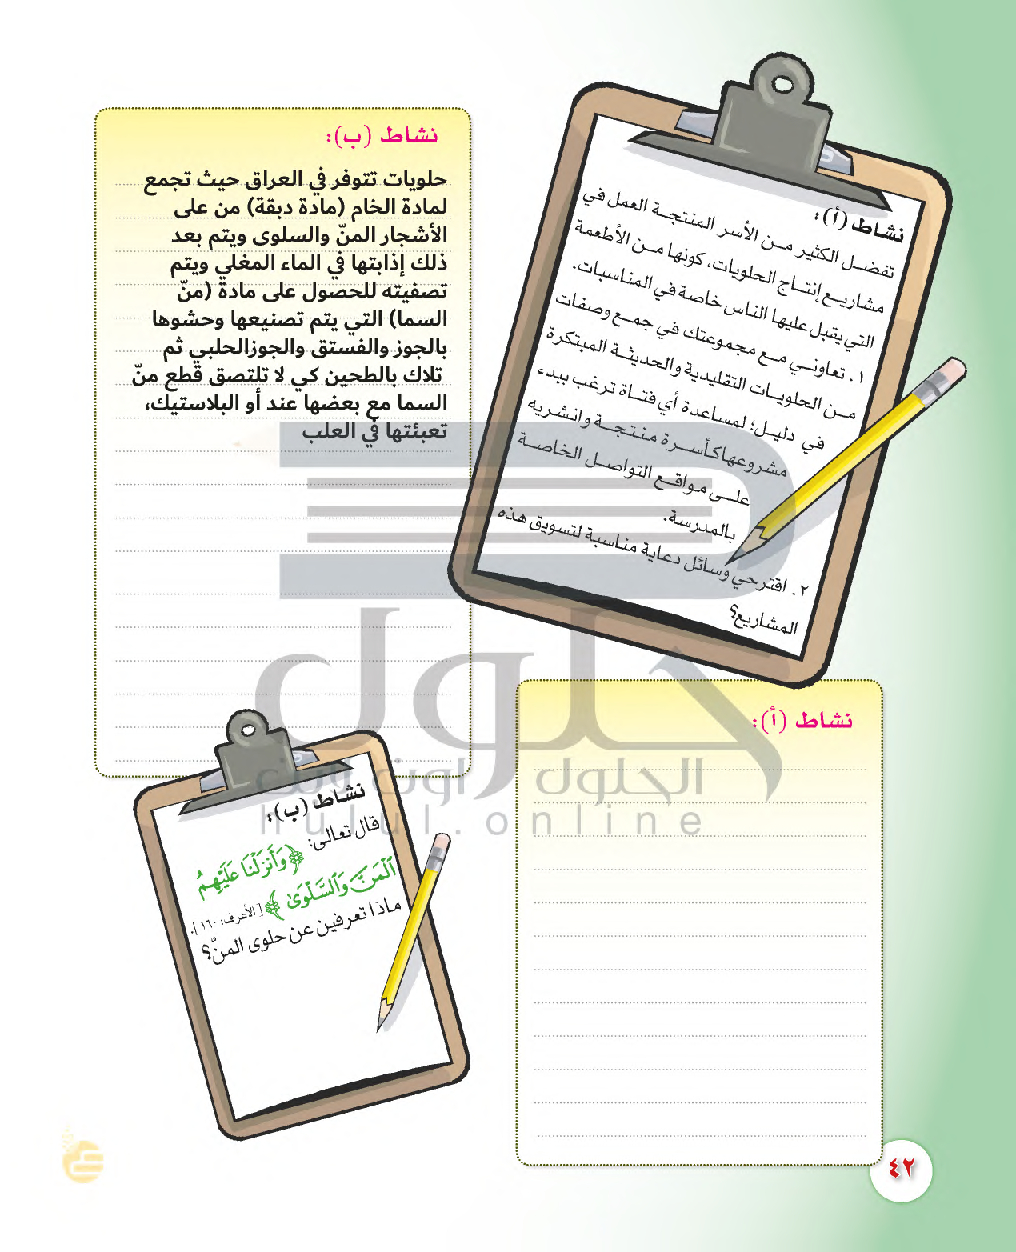 نشاط (أ):
تفضل الكثير من الأسر المنتجة العمل في
مشاريع إنتاج الحلويات، كونها من الأطعمة
التي يقبل عليها الناس خاصة في المناسبات.
١. تعاوني مع مجموعتك في جمع وصفات
من الحلويات التقليدية والحديثة المبتكرة
في دليل؛ لمساعدة أي فتاة ترغب ببدء
مشروعها كأسرة منتجة وانشريه
على مواقع التواصل الخاصة
بالمدرسة.
٢. اقترحي وسائل دعاية مناسبة لتسويق هذه
المشاريع؟
نشاط (ب):
حلويات تتوفر في العراق حيث تجمع
لمادة الخام (مادة دبقة) من على
الأشجار المنّ والسلوى ويتم بعد
ذلك إذابتها في الماء المغلي ويتم
تصفيته للحصول على مادة (منّ
السما) التي يتم تصنيعها وحشوها
بالجوز والفستق والجوزالحلبي ثم
تلاك بالطحين كي لا تلتصق قطع منّ
السما مع بعضها عند أو البلاستيك،
تعبئتها في العلب
نشاط (أ):
نشاط (ب):
قال تعالى:
﴿وَأَنزَلْنَا عَلَيْهِمُ
ٱلْمَنَّ وَٱلسَّلْوَىٰ﴾ [الأعرف: ١٦٠].
ماذا تعرفين عن حلوى المنّ؟
حلول
الحلول اون لاين
hulul.online
٤٢